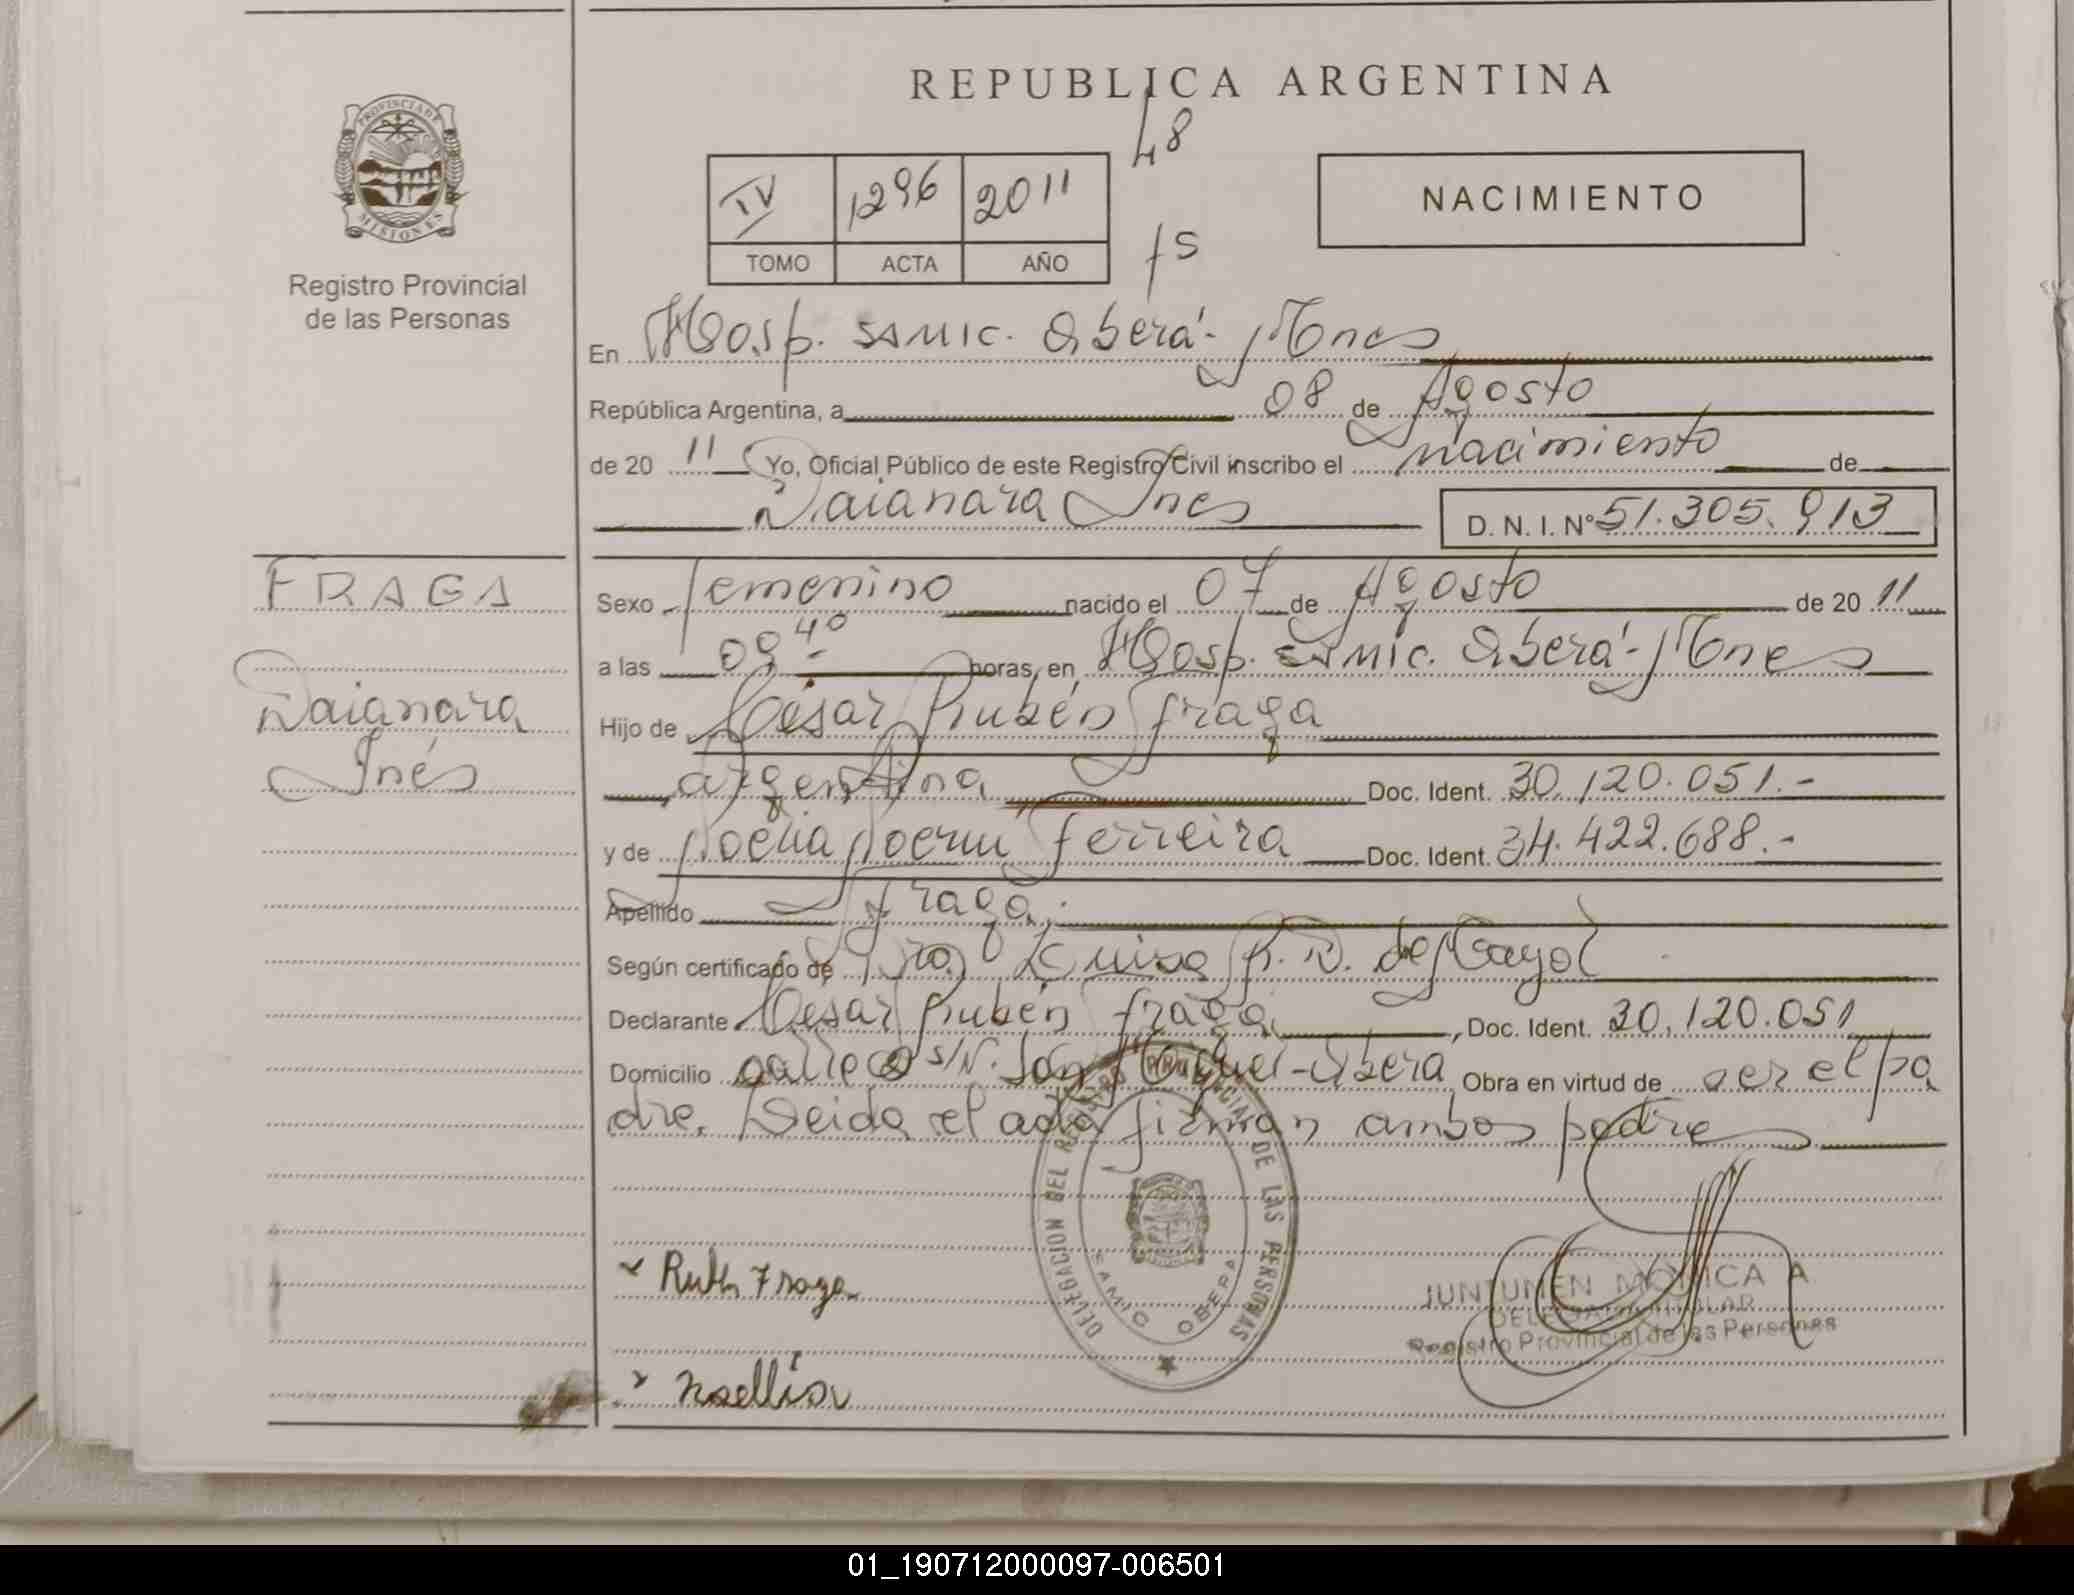 REPUBLICA ARGENTINA
48
IV 1296 2011
TOMO ACTA AÑO
NACIMIENTO
PROVINCIA DE MISIONES
Registro Provincial
de las Personas
En Hosp. SAMIC. Oberá - Mnes
República Argentina, a 08 de Agosto
de 20 11 Yo, Oficial Público de este Registro Civil inscribo el nacimiento de
Daianara Ines D. N. I. Nº 51.305.913
FRAGA
Daianara
Inés
Sexo femenino nacido el 07 de Agosto de 20 11
a las 09 40 horas, en Hosp. SAMIC. Oberá - Mnes
Hijo de César Rubén Fraga
argentina Doc. Ident. 30.120.051.-
y de Noelia Noemi Ferreira Doc. Ident. 34.422.688.-
Apellido Fraga.
Según certificado de Dra. Luisa R. D. de
Declarante Cesar Rubén Fraga, Doc. Ident. 30.120.051
Domicilio calle s/N. San Miguel - Oberá Obra en virtud de ser el pa
dre. Leida el acta firman ambos padres
DELEGACION DEL REGISTRO PROVINCIAL DE LAS PERSONAS
SAMIC OBERA
Fraga
JUNTUNEN MONICA A
DELEGADA TITULAR
Registro Provincial de las Personas
01_190712000097-006501